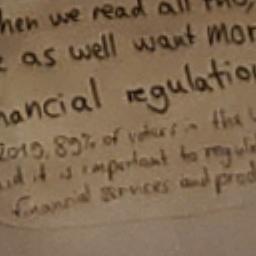 hen we read all
as well want mor
nancial regulation
2019, 89% of voters in the
it is important to regul
financial services and prod